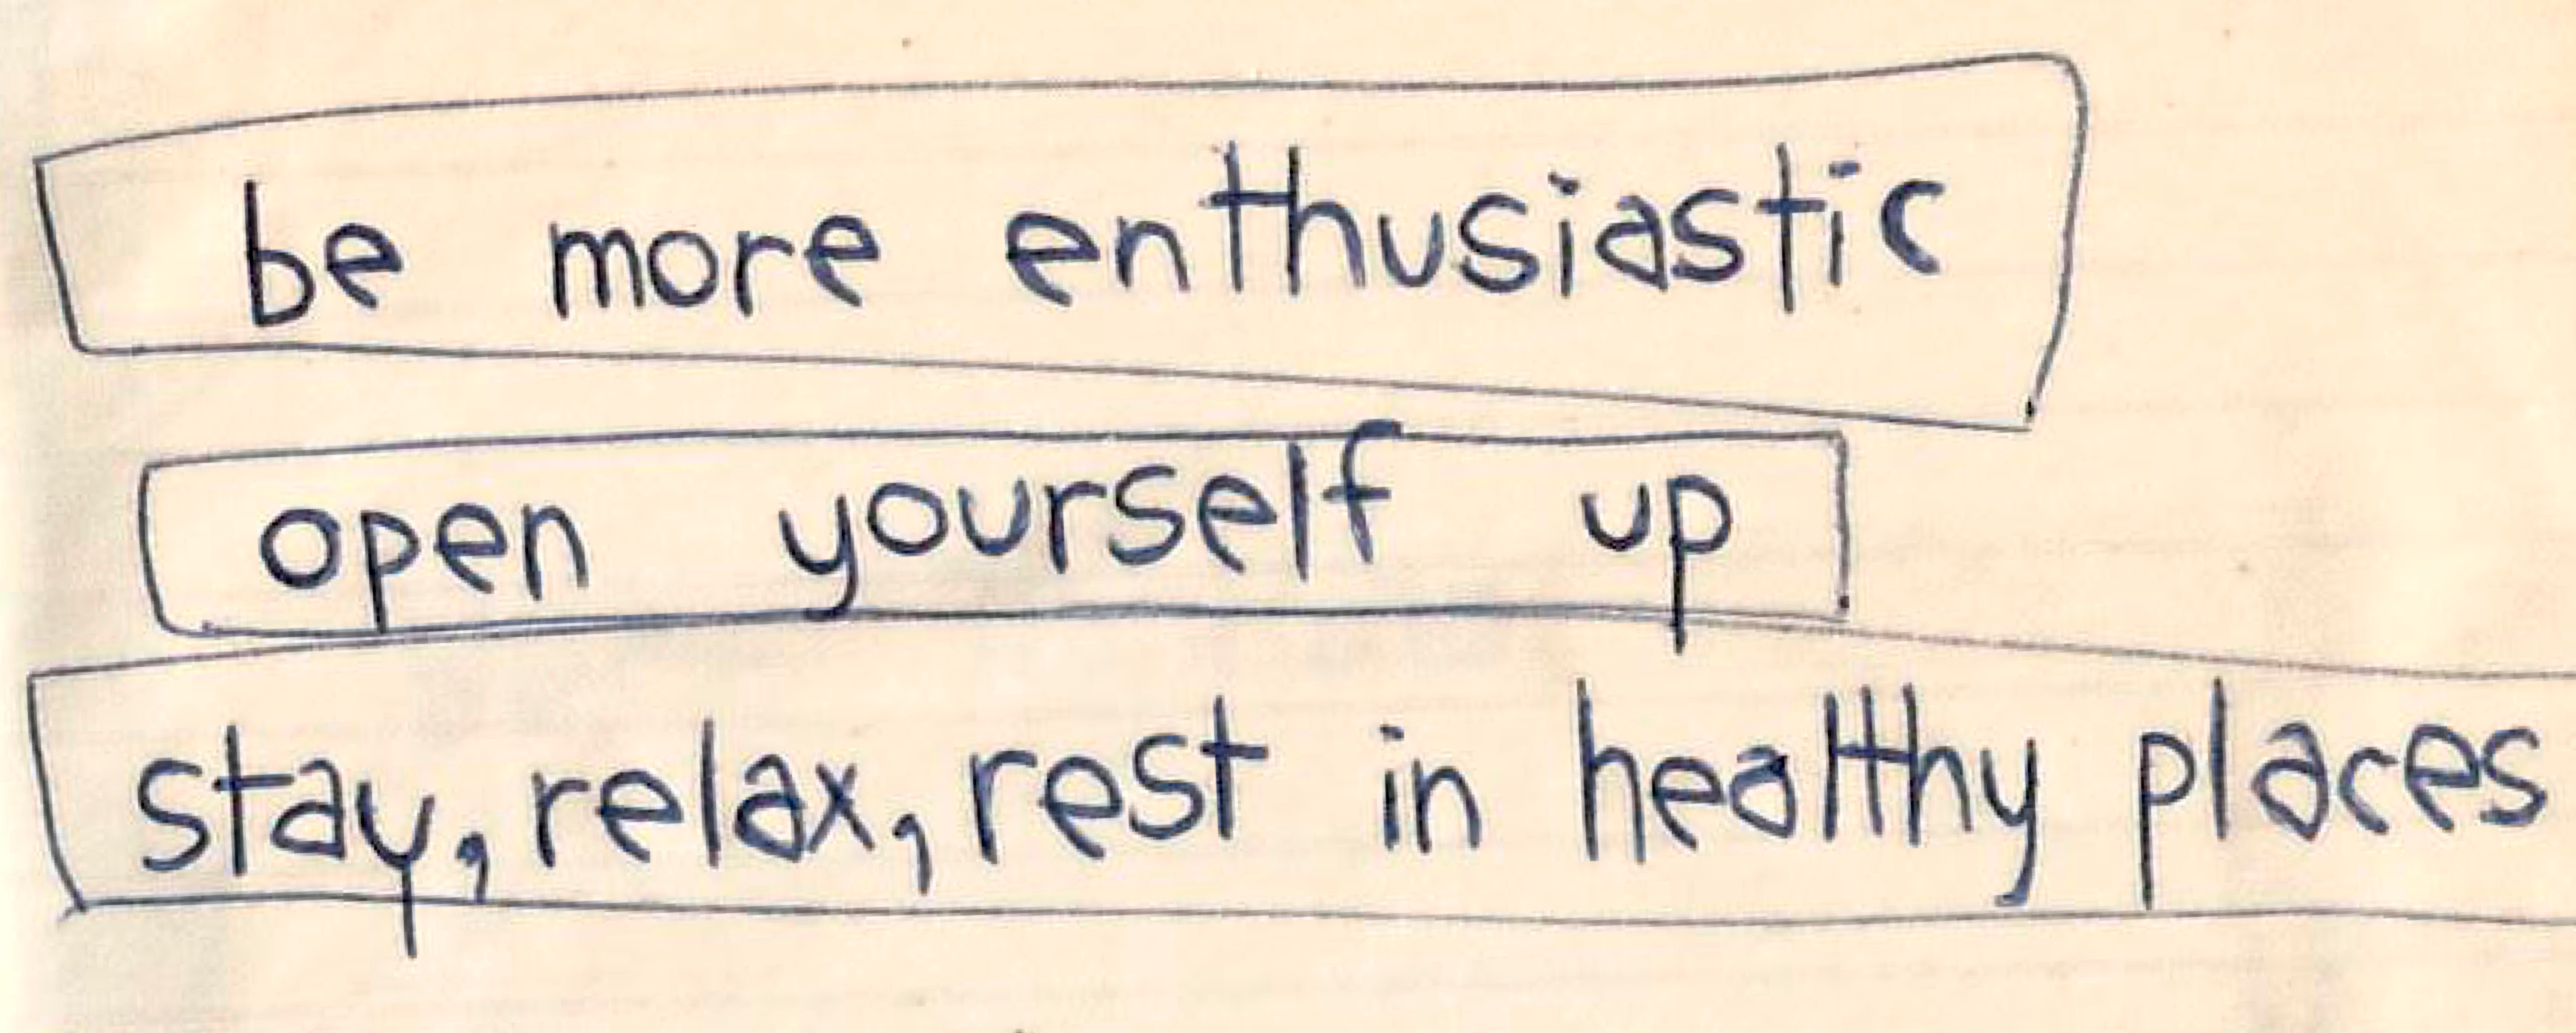 be more enthusiastic
open yourself up
stay, relax, rest in healthy places